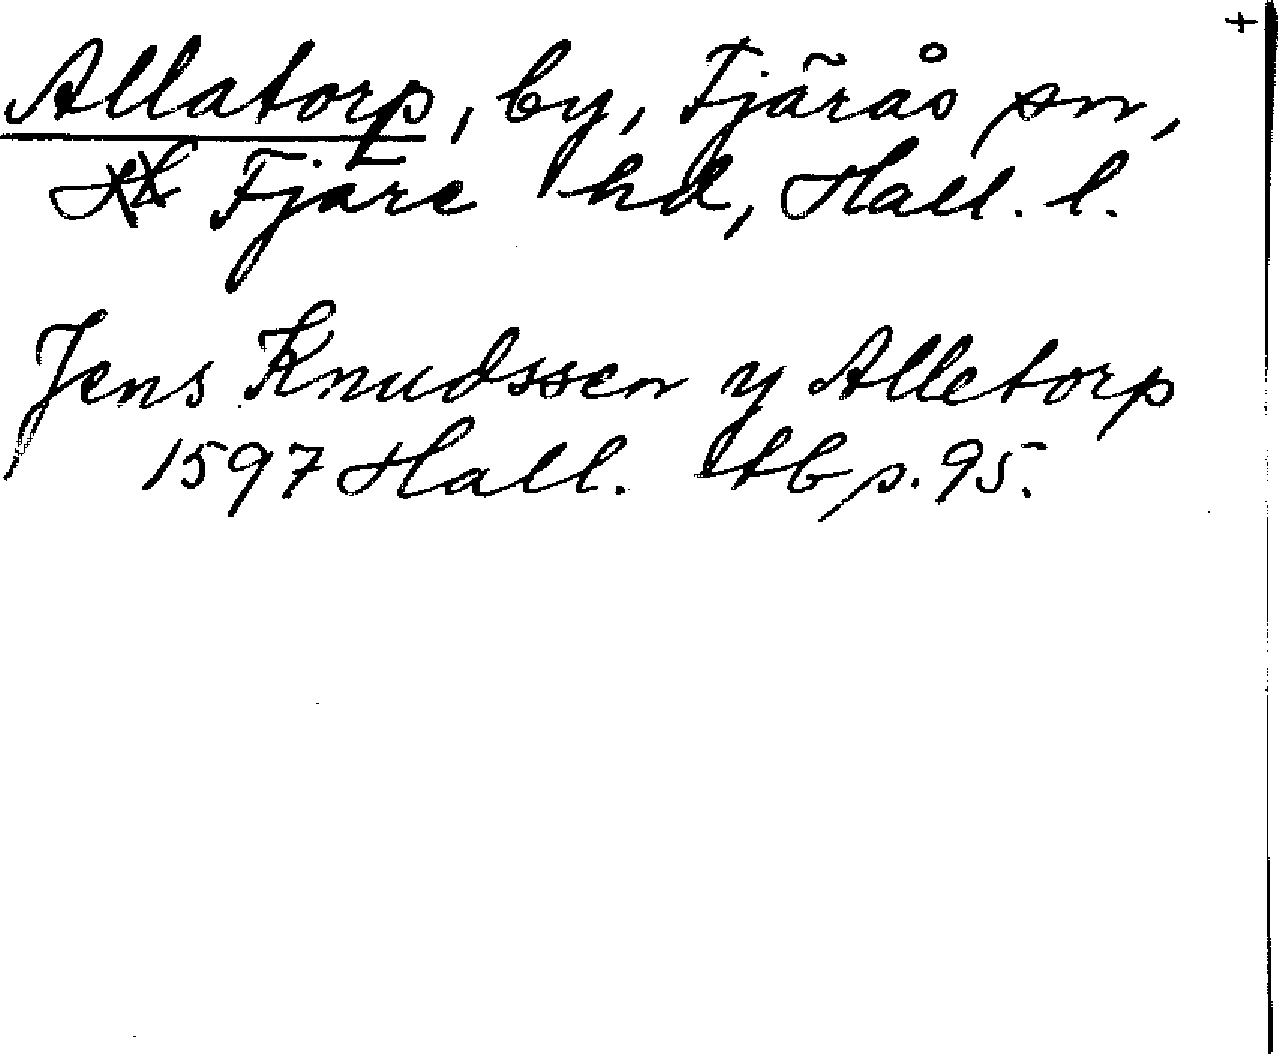 +
Allatorp, by, Fjärås sn,
Fjäre hd, Hall. l.
Jens Knudssen y Alletorp
1597 Hall. tb p. 95.